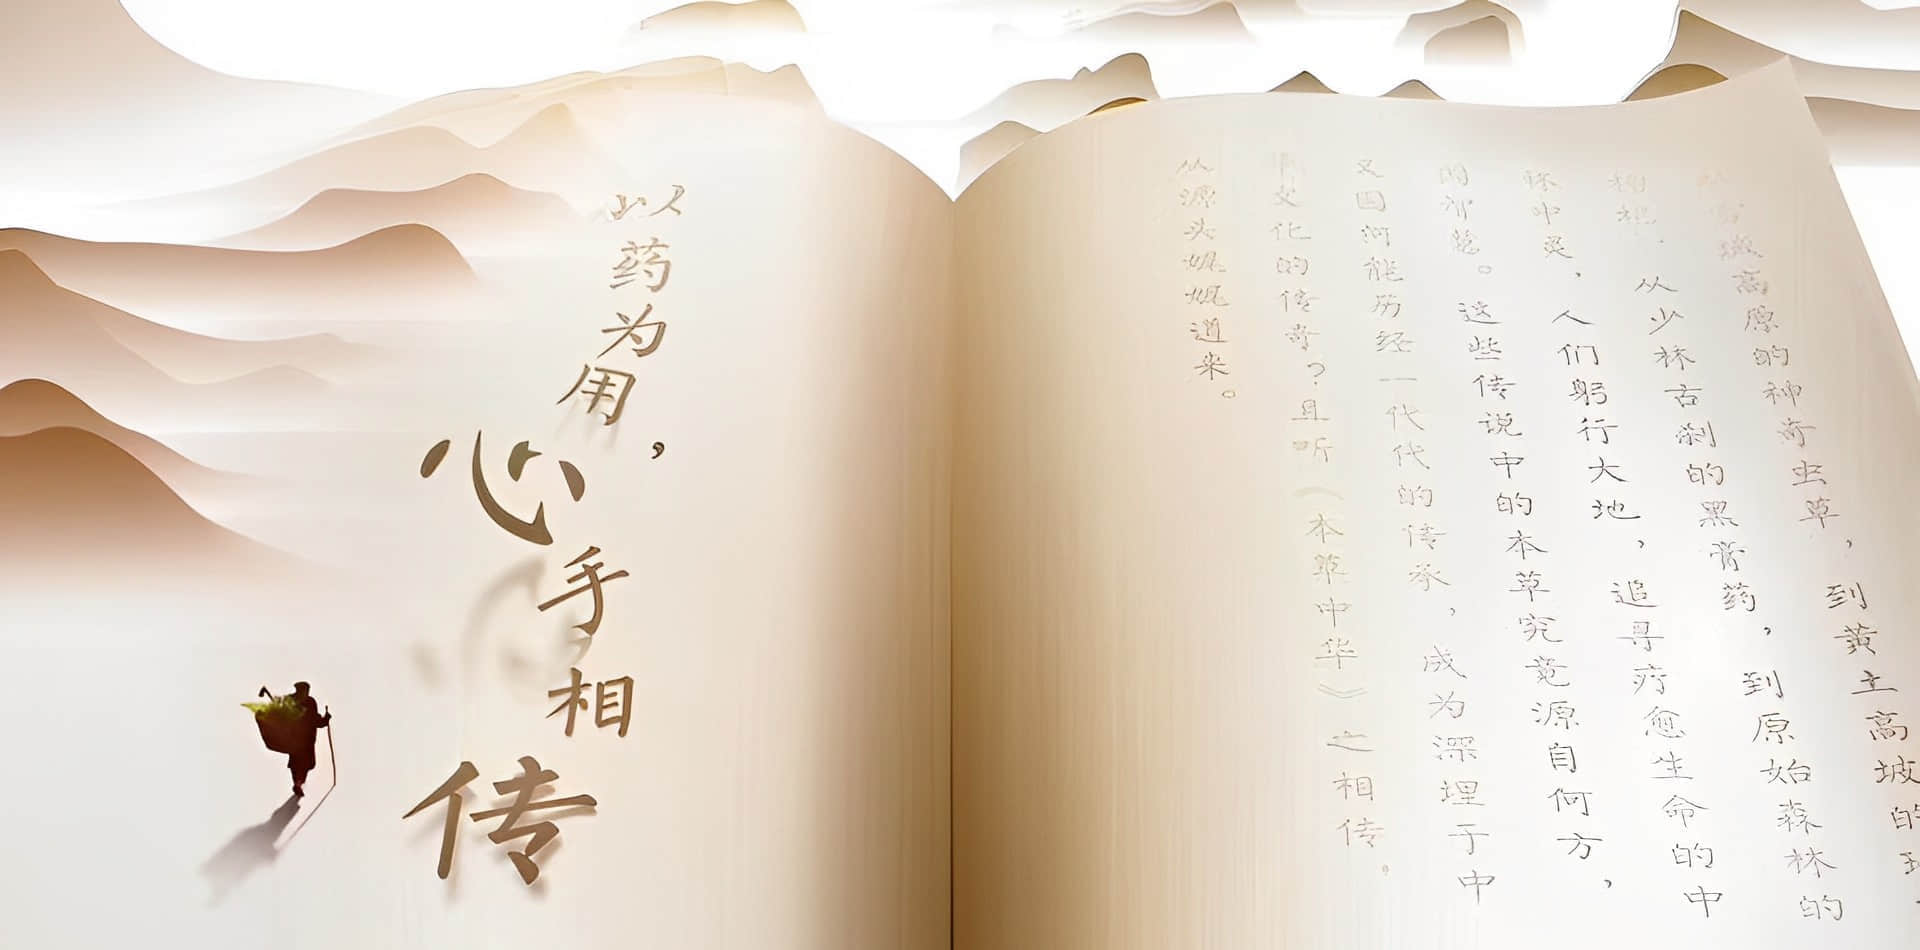 以药为用，
心手相传
高原的神奇虫草，到黄土高坡的
从少林古刹的黑膏药，到原始森林的
人们躬行大地，追寻疗愈生命的中
这些传说中的本草究竟源自何方，
又因何能历经一代代的传承，成为深埋于中
文化的传奇？且听《本草中华》之相传。
从源头娓娓道来。